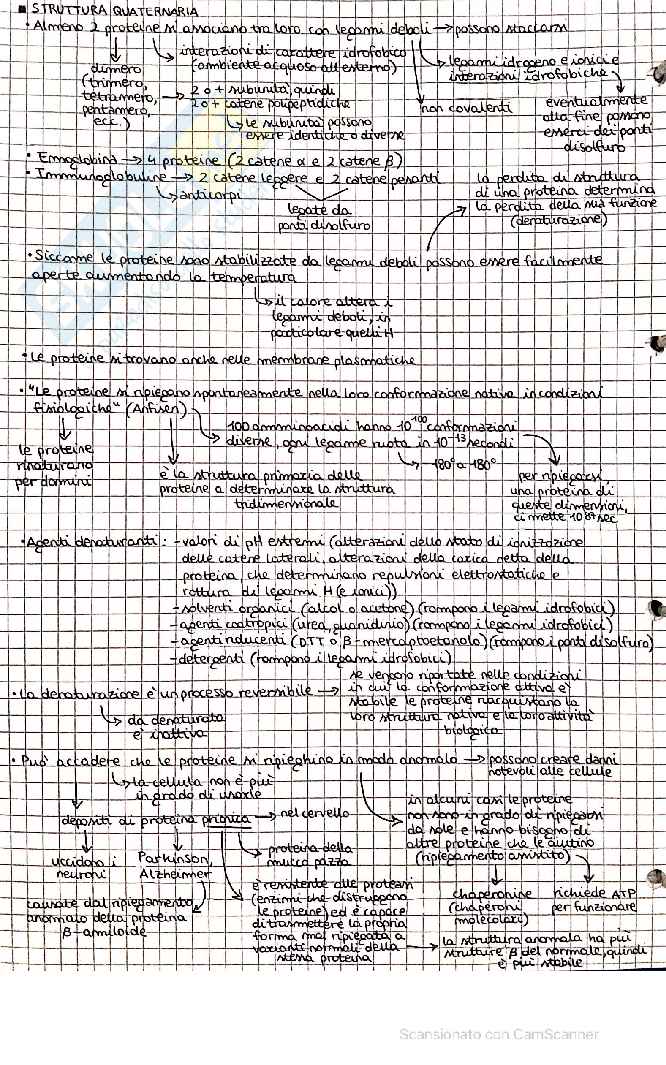 ■ STRUTTURA QUATERNARIA
• Almeno 2 proteine si associano tra loro con legami deboli → possono staccarsi
interazioni di carattere idrofobico
(ambiente acquoso all'esterno)
legami idrogeno e ionici e
interazioni idrofobiche
dimero
(trimero,
tetramero,
pentamero,
ecc.)
→ 2 o + subunità, quindi
2 o + catene polipeptidiche
le subunità possono
essere identiche o diverse
non covalenti
eventualmente
alla fine possono
esserci dei ponti
disolfuro
• Emoglobina → 4 proteine (2 catene α e 2 catene β)
• Immunoglobuline → 2 catene leggere e 2 catene pesanti
anticorpi
legate da
ponti disolfuro
la perdita di struttura
di una proteina determina
la perdita della sua funzione
(denaturazione)
• Siccome le proteine sono stabilizzate da legami deboli possono essere facilmente
aperte aumentando la temperatura
il calore altera i
legami deboli, in
particolare quelli H
• Le proteine si trovano anche nelle membrane plasmatiche
• "Le proteine si ripiegano spontaneamente nella loro conformazione nativa in condizioni
fisiologiche" (Anfisen)
100 amminoacidi hanno 10¹⁰⁰ conformazioni
diverse, ogni legame ruota in 10⁻¹³ secondi
-180° a 180°
le proteine
rinaturano
per domini
è la struttura primaria delle
proteine a determinare la struttura
tridimensionale
per ripiegarsi,
una proteina di
queste dimensioni,
ci mette 10⁸⁷ sec
• Agenti denaturanti: - valori di pH estremi (alterazioni dello stato di ionizzazione
delle catene laterali, alterazioni della carica netta della
proteina, che determinano repulsioni elettrostatiche e
rottura di legami H (e ionici))
- solventi organici (alcol o acetone) (rompono i legami idrofobici)
- agenti caotropici (urea, guanidinio) (rompono i legami idrofobici)
- agenti riducenti (DTT o β-mercaptoetanolo) (rompono i ponti disolfuro)
- detergenti (rompono i legami idrofobici)
• La denaturazione è un processo reversibile →
se vengono riportate nelle condizioni
in cui la conformazione attiva è
stabile le proteine riacquistano la
loro struttura nativa e la loro attività
biologica
da denaturata
è inattiva
• Può accadere che le proteine si ripieghino in modo anomalo → possono creare danni
notevoli alle cellule
la cellula non è più
in grado di usarle
depositi di proteina prionica → nel cervello
in alcuni casi le proteine
non sono in grado di ripiegarsi
da sole e hanno bisogno di
altre proteine che le aiutino
(ripiegamento assistito)
uccidono i
neuroni
Parkinson,
Alzheimer
proteina della
mucca pazza
causate dal ripiegamento
anomalo della proteina
β-amiloide
è resistente alle proteasi
(enzimi che distruggono
le proteine) ed è capace
di trasmettere la propria
forma mal ripiegata a
varianti normali della
stessa proteina
chaperonine
(chaperoni
molecolari)
richiede ATP
per funzionare
→ la struttura anomala ha più
strutture β del normale, quindi
è più stabile
Scansionato con CamScanner